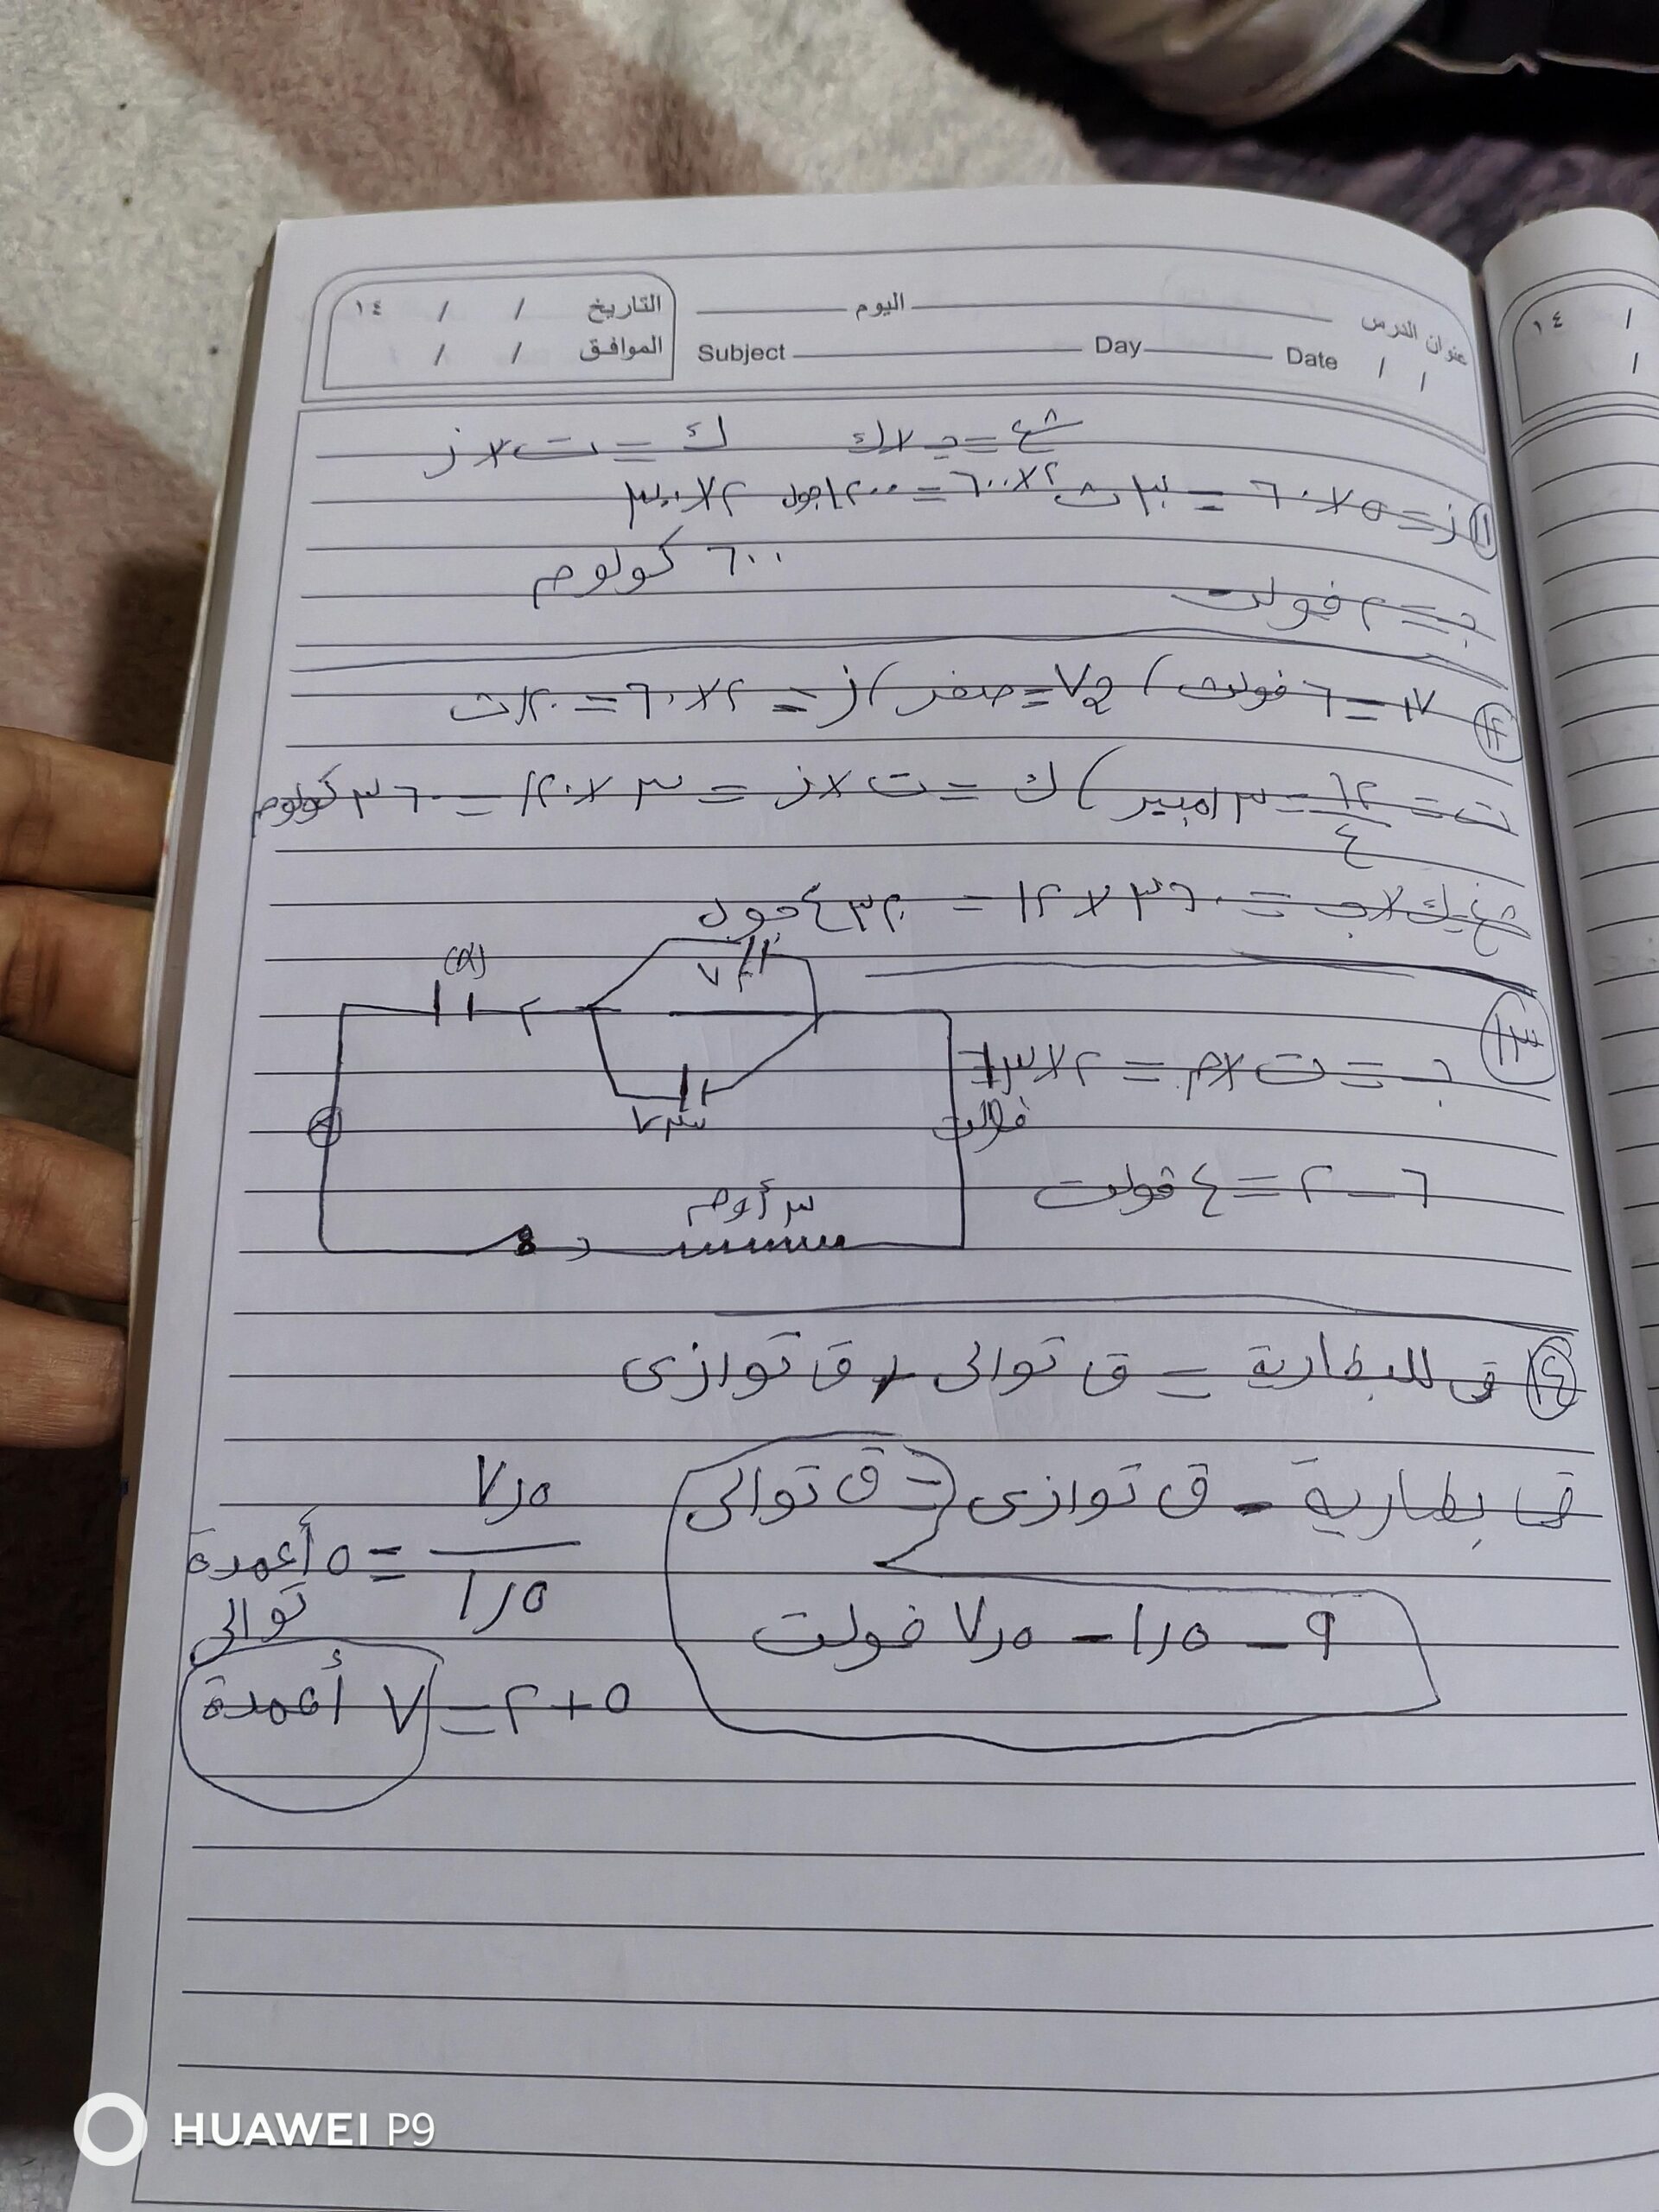 عنوان الدرس اليوم التاريخ / / ١٤
Subject Day Date / / الموافق / /
شغ = جـ × ك ك = ت × ز
١١ ز = ٥ × ٦٠ = ٣٠٠ ث ٢ × ٦٠٠ = ١٢٠٠ جول ٢ × ٣٠٠
٦٠٠ كولوم
جـ = ٢ فولت
١٢ V١ = ٦ فولت ) V٢ = صفر ) ز = ٢ × ٦٠ = ١٢٠ ث
ت = ١٢/٤ = ٣ امبير ) ك = ت × ز = ٣ × ١٢٠ = ٣٦٠ كولوم
شغ = ك × جـ = ٣٦٠ × ١٢ = ٤٣٢٠ جول
١٣
V٢
جـ = ت × م = ٢ × ٣ = ٦
فولت
V٣
A
٦ - ٢ = ٤ فولت
٣ أوم
١٤ ق للبطارية = ق توالى + ق توازى
ق بطارية - ق توازى = ق توالى
٧٫٥ / ١٫٥ = ٥ أعمدة
توالى
٩ - ١٫٥ = ٧٫٥ فولت
٥ + ٢ = ٧ أعمدة
HUAWEI P9